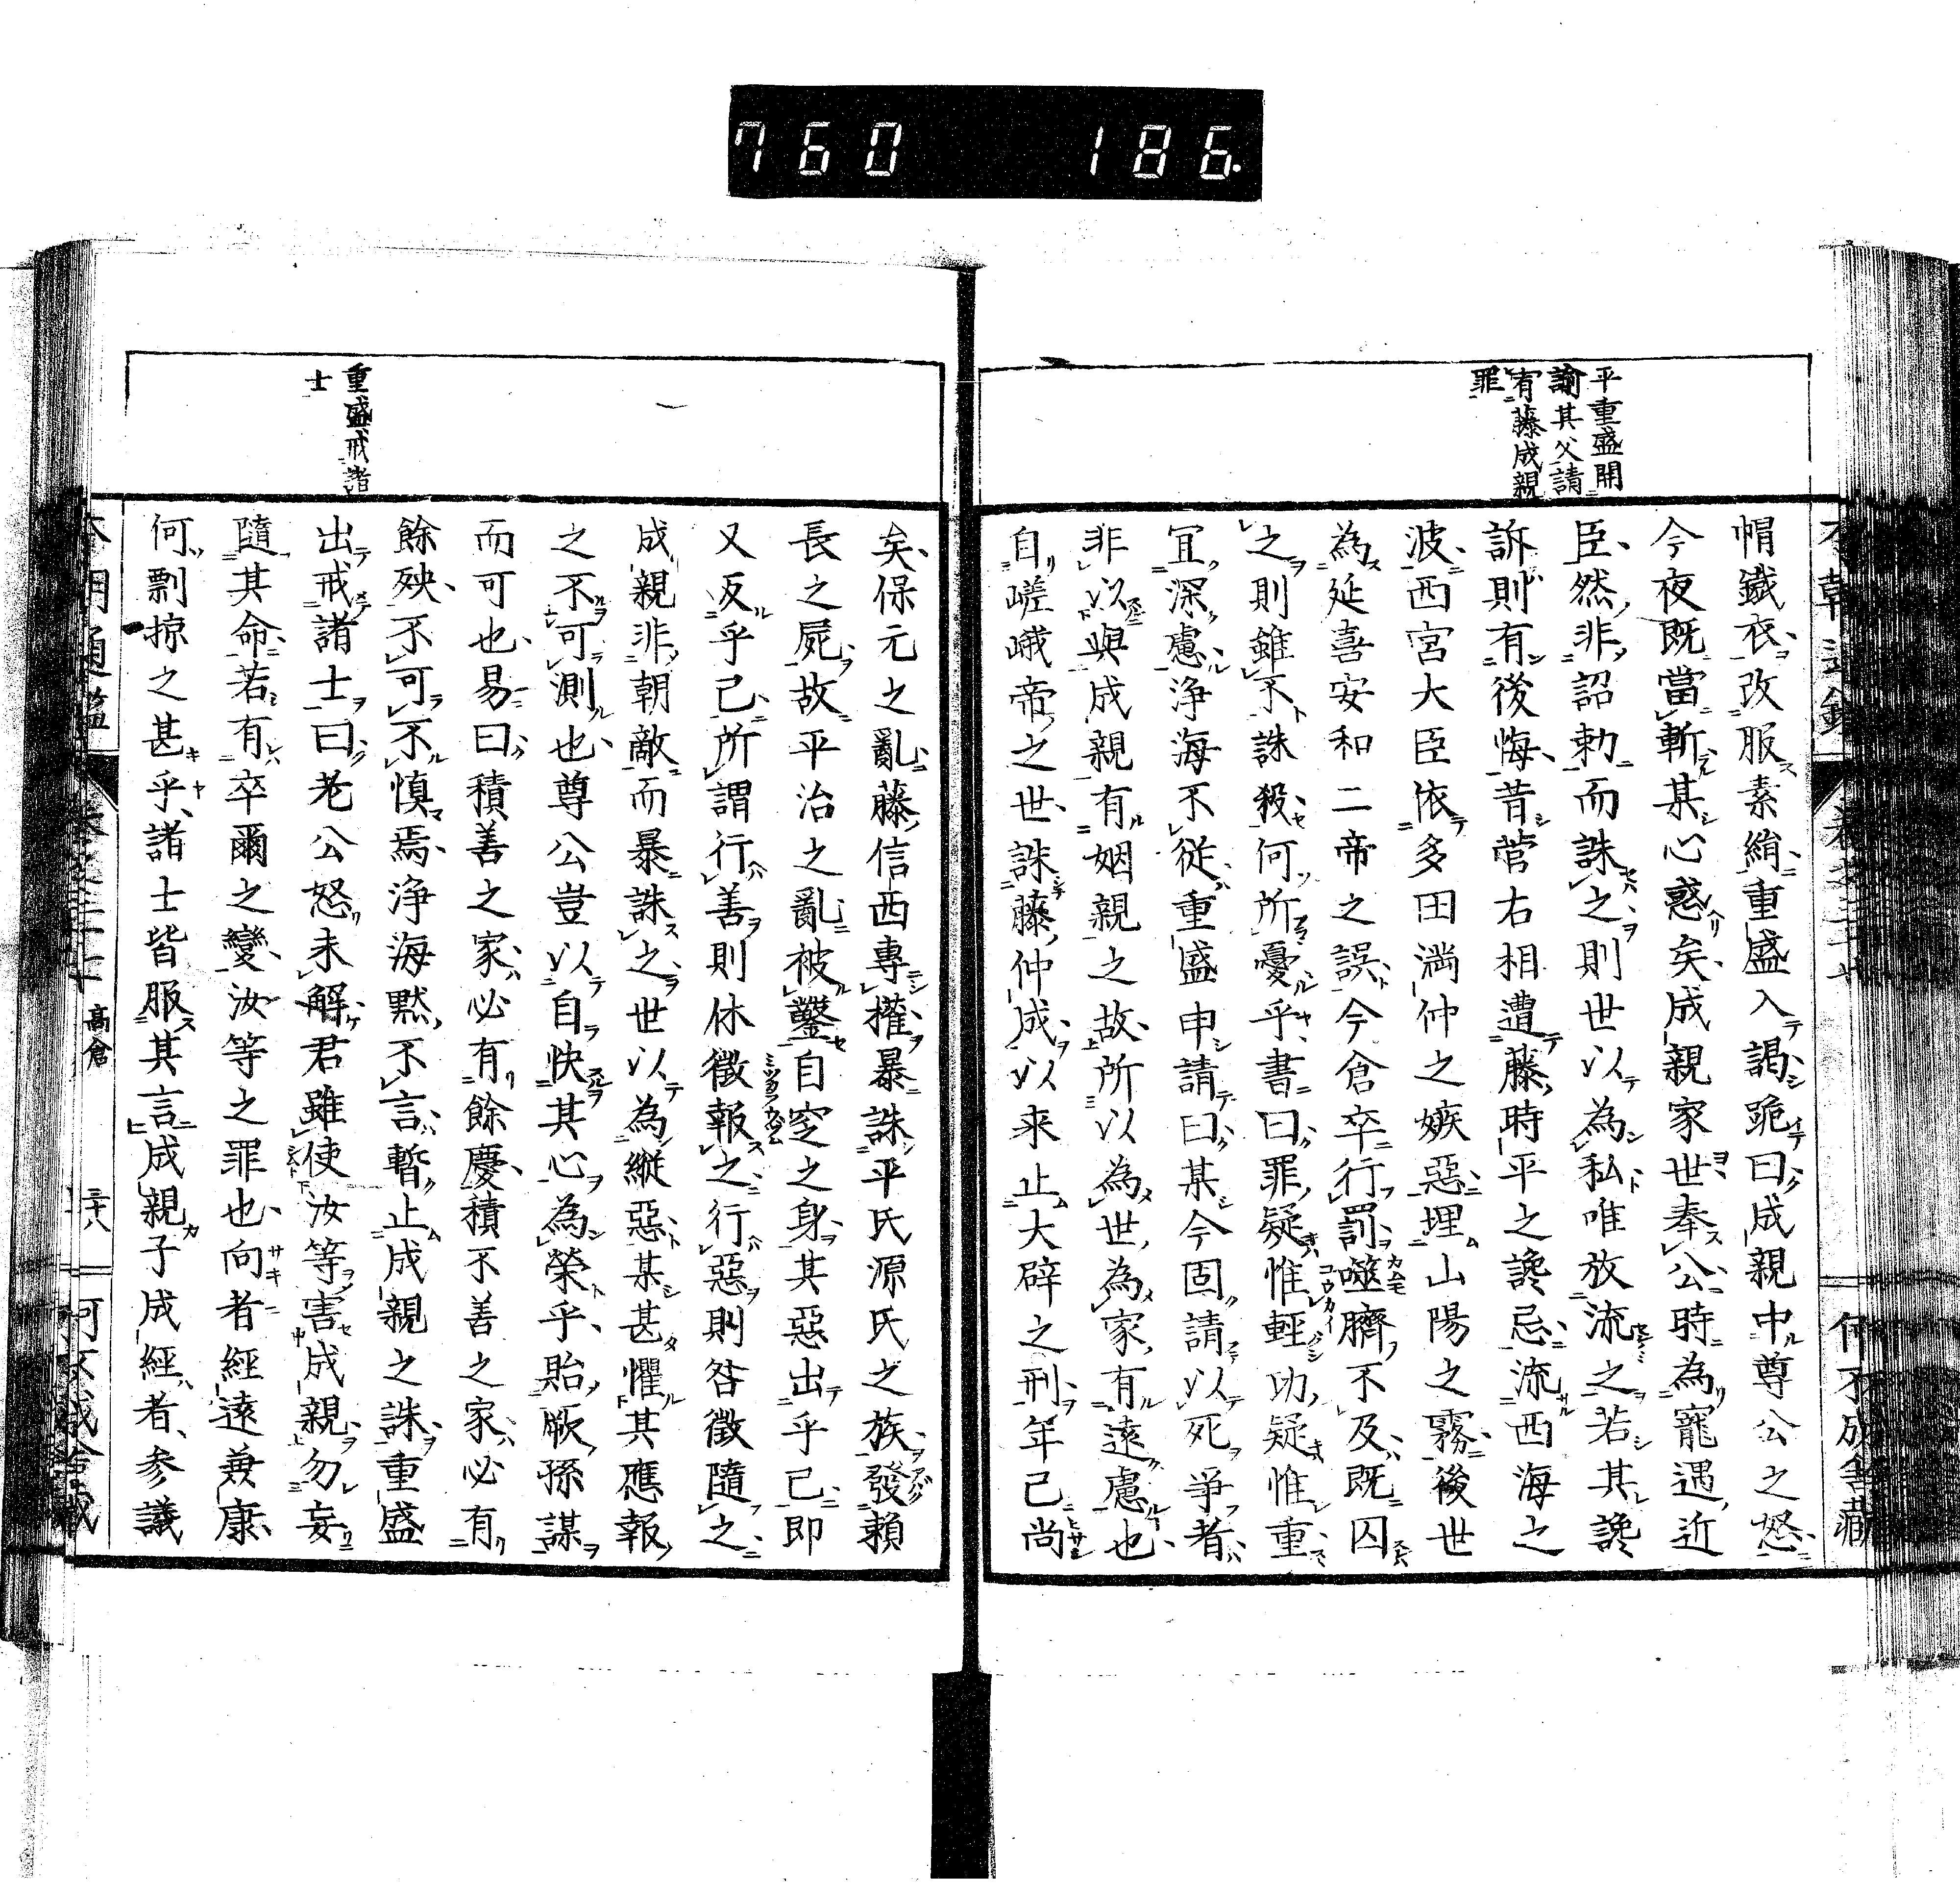 760 186.
平重盛開
諭其父請
宥藤成親
罪
帽鐵衣改服素絹重盛入謁跪曰成親中尊公之怒
今夜既當斬某心惑矣成親家世奉公時為寵遇近
臣然非詔勅而誅之則世以為私唯放流之若其讒
訴則有後悔昔菅右相遭藤時平之讒忌流西海之
波西宮大臣依多田滿仲之嫉惡埋山陽之霧後世
為延喜安和二帝之誤今倉卒行罰噬臍不及既囚
之則雖不誅殺何所憂乎書曰罪疑惟輕功疑惟重
冝深慮浄海不從重盛申請曰某今固請以死爭者
非以與成親有姻親之故所以為世為家有遠慮也
自嵯峨帝之世誅藤仲成以来止大辟之刑年已尚
矣保元之亂藤信西專權暴誅平氏源氏之族發賴
長之屍故平治之亂被鑿自空之身其惡出乎己即
又反乎己所謂行善則休徵報之行惡則咎徵隨之
成親非朝敵而暴誅之世以為縱惡某甚懼其應報
之不可測也尊公豈以自快其心為榮乎貽厥孫謀
而可也易曰積善之家必有餘慶積不善之家必有
餘殃不可不慎焉浄海黙不言暫止成親之誅重盛
出戒諸士曰老公怒未解君雖使汝等害成親勿妄
隨其命若有卒爾之變汝等之罪也向者經遠兼康
何剽掠之甚乎諸士皆服其言成親子成經者参議
重盛戒諸
士
高倉
三十八